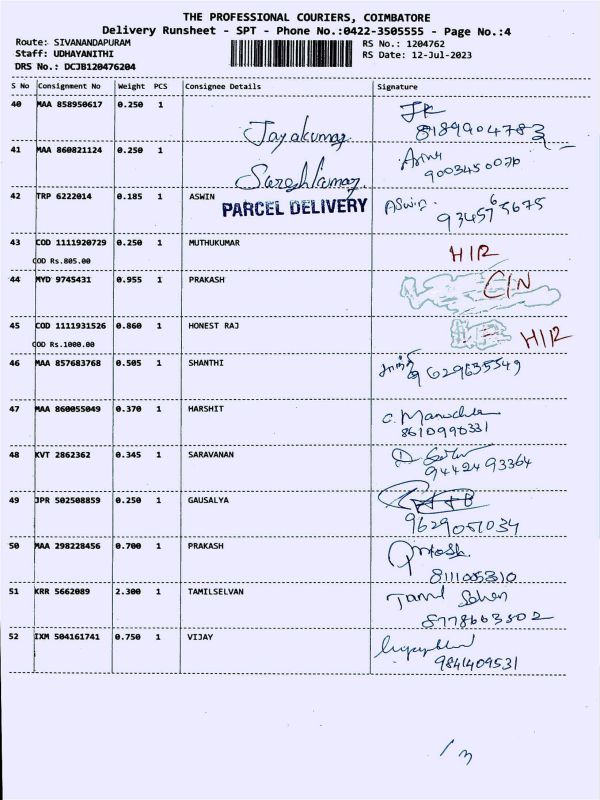 THE PROFESSIONAL COURIERS, COIMBATORE
Delivery Runsheet - SPT - Phone No.:0422-3505555 - Page No.:4
Route: SIVANANDAPURAM
RS No.: 1204762
Staff: UDHAYANITHI
RS Date: 12-Jul-2023
DRS No.: DCJB120476204
S No Consignment No Weight PCS Consignee Details Signature
40 MAA 858950617 0.250 1 Jayakumar
8189904783
41 MAA 860821124 0.250 1 Sureshkumar
9003450076
42 TRP 6222014 0.185 1 ASWIN Aswin.
PARCEL DELIVERY
43 COD 1111920729 0.250 1 MUTHUKUMAR H/R
COD Rs.805.00
44 MYD 9745431 0.955 1 PRAKASH C/N
45 COD 1111931526 0.860 1 HONEST RAJ H/R
COD Rs.1000.00
46 MAA 857683768 0.505 1 SHANTHI 9629635549
47 MAA 860055049 0.370 1 HARSHIT
8610990331
48 KVT 2862362 0.345 1 SARAVANAN
9442493364
49 JPR 502508859 0.250 1 GAUSALYA
9629051034
50 MAA 298228456 0.700 1 PRAKASH
811105310
51 KRR 5662089 2.300 1 TAMILSELVAN Tamil Selven
8778663302
52 IXM 504161741 0.750 1 VIJAY
9841409531